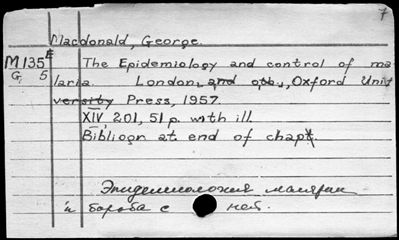 7
Macdonald, George.
M135 E The Epidemiology and control of ma
G 5 laria. London, and oth., Oxford Univ
versity Press, 1957.
XIV, 201, 51 p. with ill.
Bibliogr. at end of chapt.
Эпидемиология малярии
и борьба с ней.